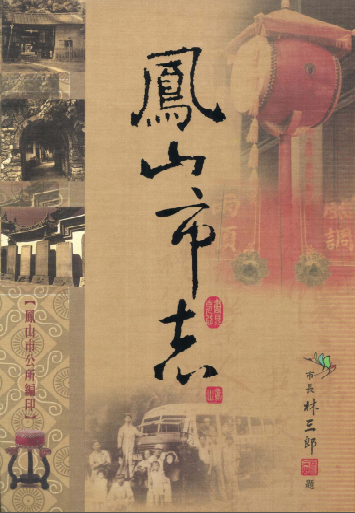 鳳山市志
市長 林三郎 題
【鳳山市公所編印】